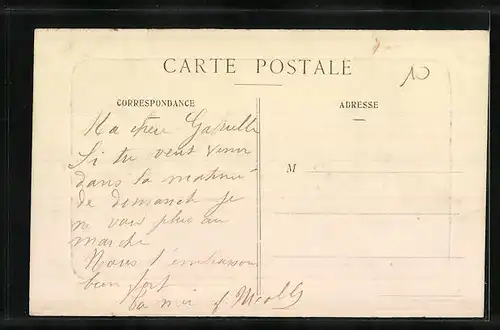 CARTE POSTALE
10
CORRESPONDANCE
ADRESSE
Ma chère Gabrielle
Si tu veut venir
dans la matiné
de dimanch je
ne vais plus au
marché
Nous t'embrasson
bien fort
M